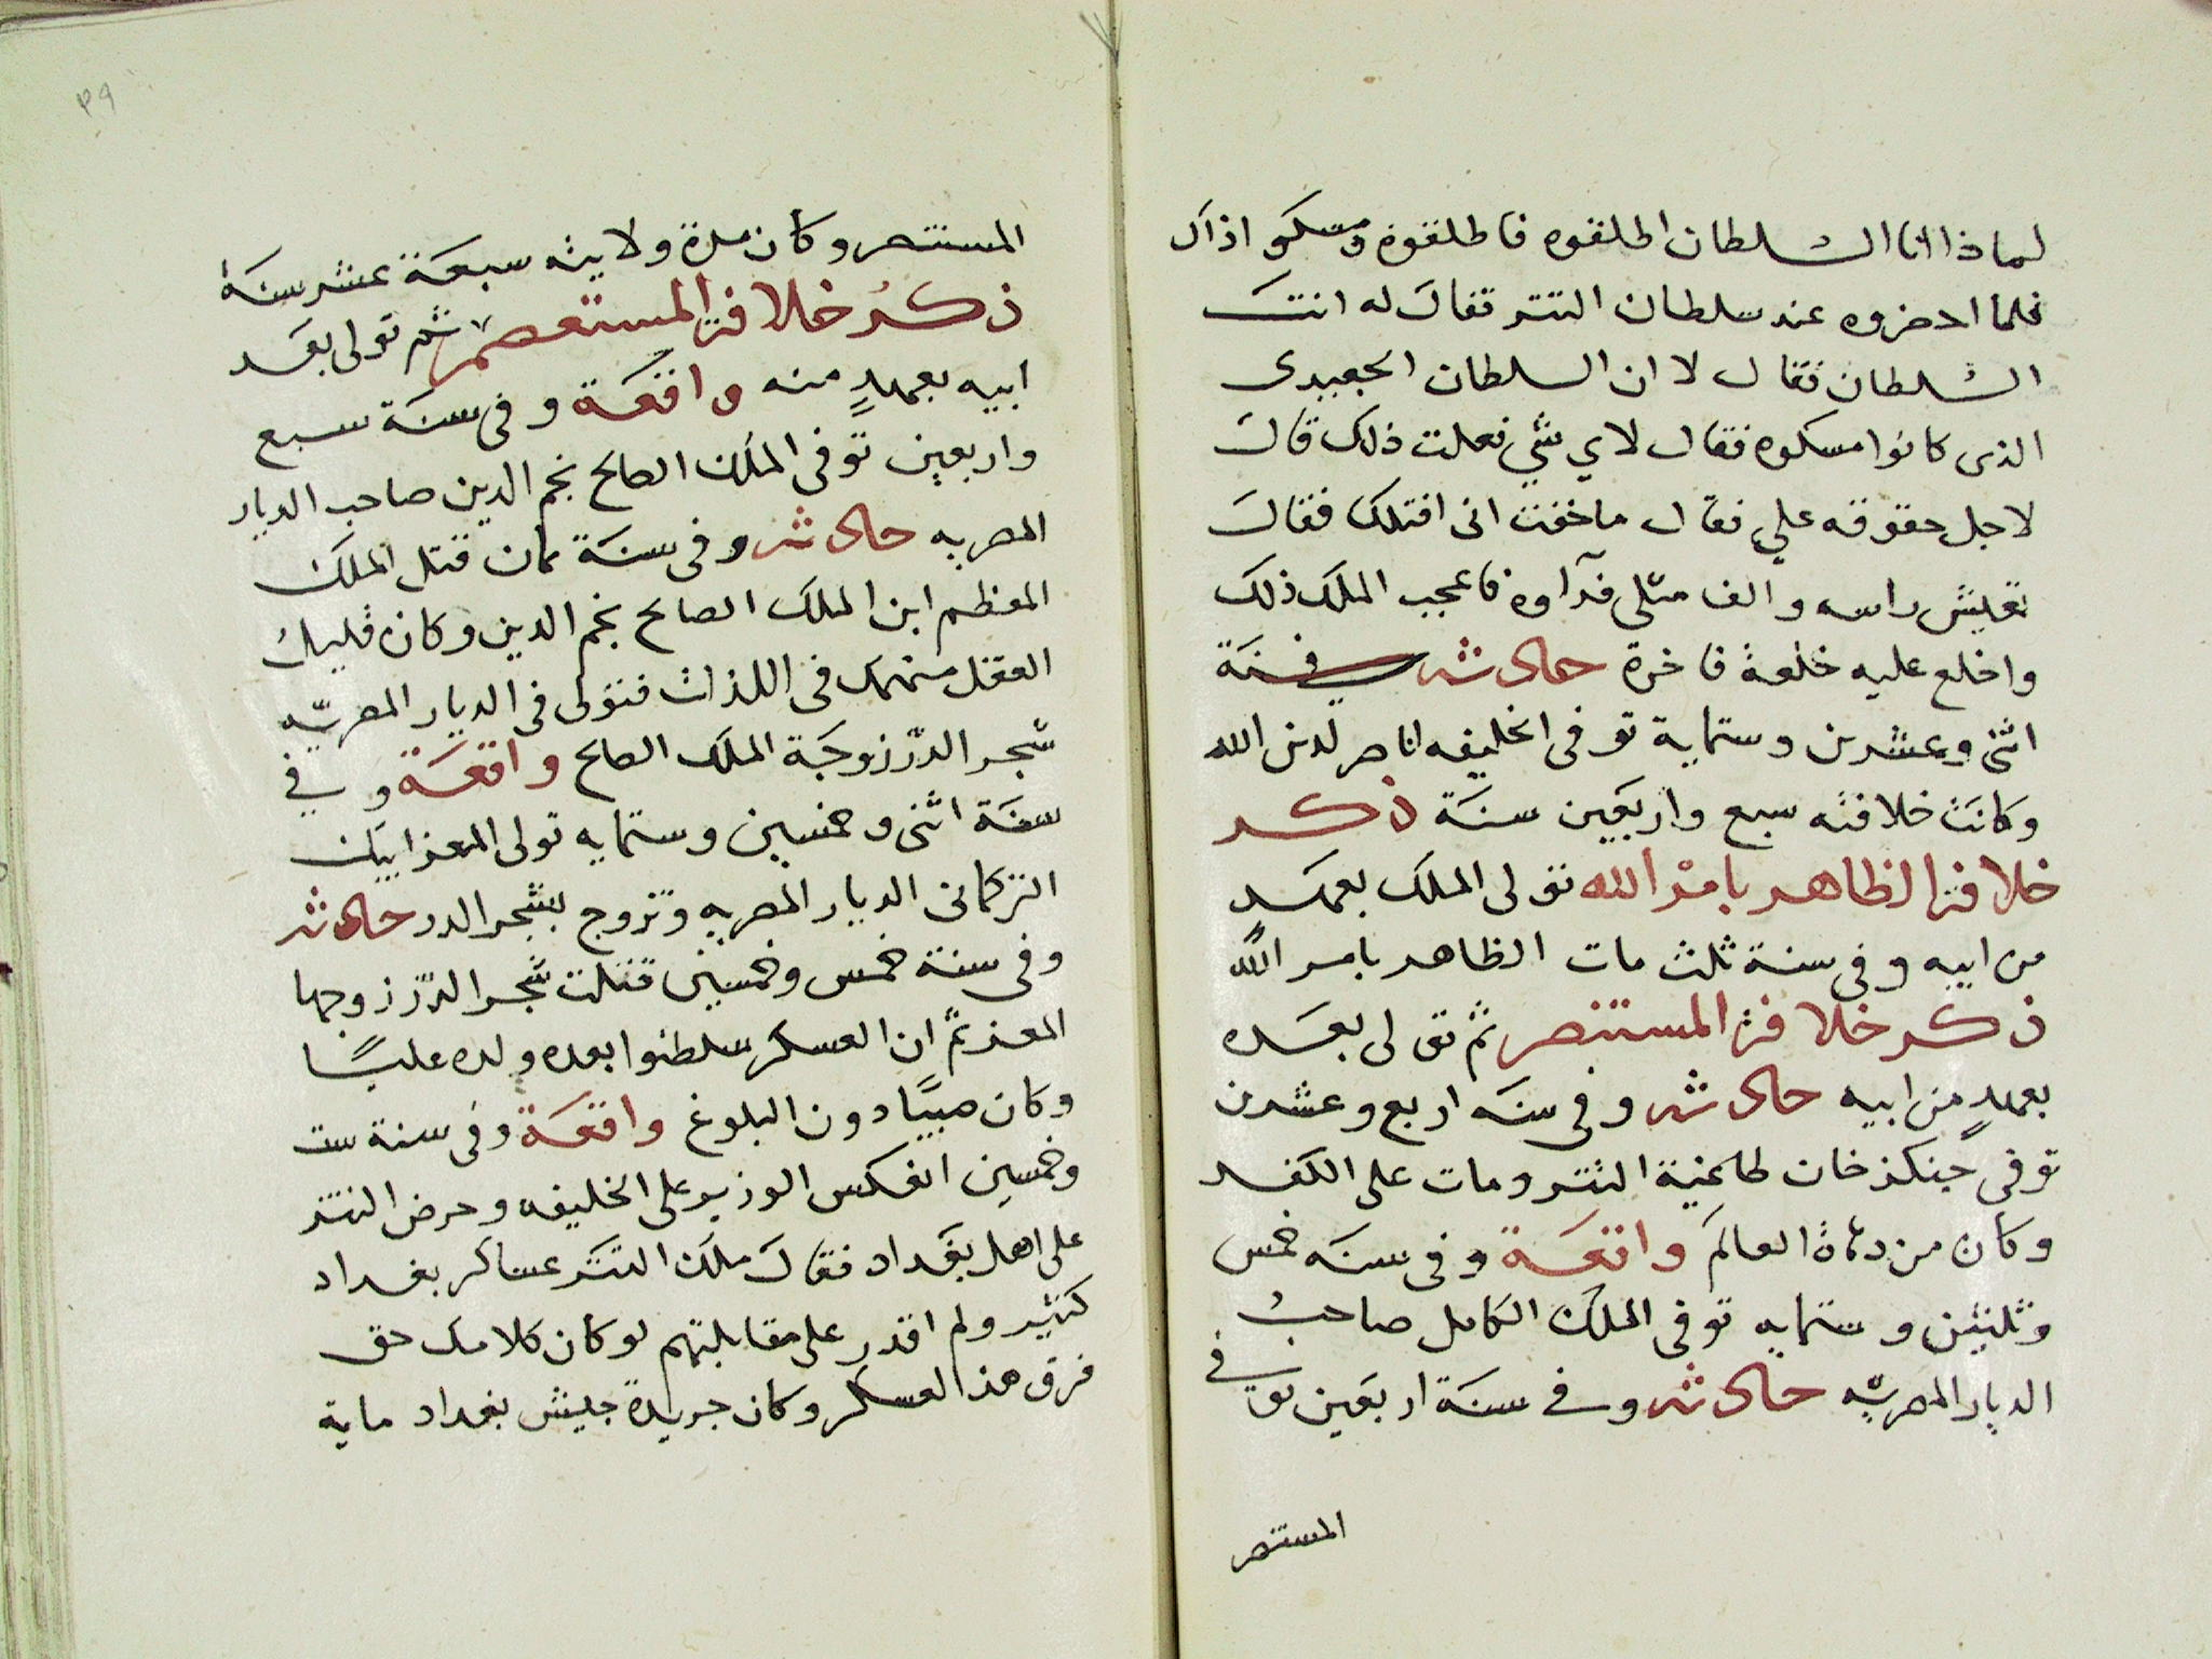 لماذا انا السلطان اطلقوه فاطلقوه ومسكو اذاك
فلما احضروه عند سلطان التتر فقال له انت
السلطان فقال لا ان السلطان الجعيدى
الذى كانوا مسكوه فقال لاي شي فعلت ذلك قال
لاجل حقوقه علي فقال ما خفت انى اقتلك فقال
تعيش راسه والف مثلى فداوه فاعجب الملك ذلك
واخلع عليه خلعة فاخرة حادثه وفي سنة
اثنى وعشرين وستماية توفى الخليفه الناصر لدين الله
وكانت خلافته سبع واربعين سنة ذكر
خلافة الظاهر بامر الله تولى الملك بعهد
من ابيه وفى سنة ثلث مات الظاهر بامر الله
ذكر خلافة المستنصر ثم تولى بعده
بعهد من ابيه حادثه وفى سنه اربع وعشرين
توفى جنكزخان طاغية التتر ومات على الكفر
وكان من دهاة العالم واقعة وفى سنه خمس
وثلثين وستمايه توفى الملك الكامل صاحب
الديار المصريه حادثه وفى سنة اربعين توفى
المستنصر
٣٩
المستنصر وكان مدة ولايته سبعة عشر سنة
ذكر خلافة المستعصم ثم تولى بعد
ابيه بعهد منه واقعة وفى سنة سبع
واربعين توفى الملك الصالح نجم الدين صاحب الديار
المصريه حادثه وفى سنة ثمان قتل الملك
المعظم ابن الملك الصالح نجم الدين وكان قليل
العقل منهمك فى اللذات فتولى فى الديار المصريه
شجر الدر زوجة الملك الصالح واقعة وفي
سنة اثنى وخمسين وستمايه تولى المعز ايبك
التركمانى الديار المصريه وتزوج بشجر الدر حادثه
وفى سنة خمس وخمسين قتلت شجر الدر زوجها
المعز ثم ان العسكر سلطنوا بعده ولده عليا
وكان صبيا دون البلوغ واقعة وفى سنة ست
وخمسين انعكس الوزير على الخليفه وحرض التتر
على اهل بغداد فقال ملك التتر عساكر بغداد
كثير ولم اقدر على مقابلتهم لو كان كلامك حق
فرق هذا العسكر وكان جريدة جيش بغداد ماية